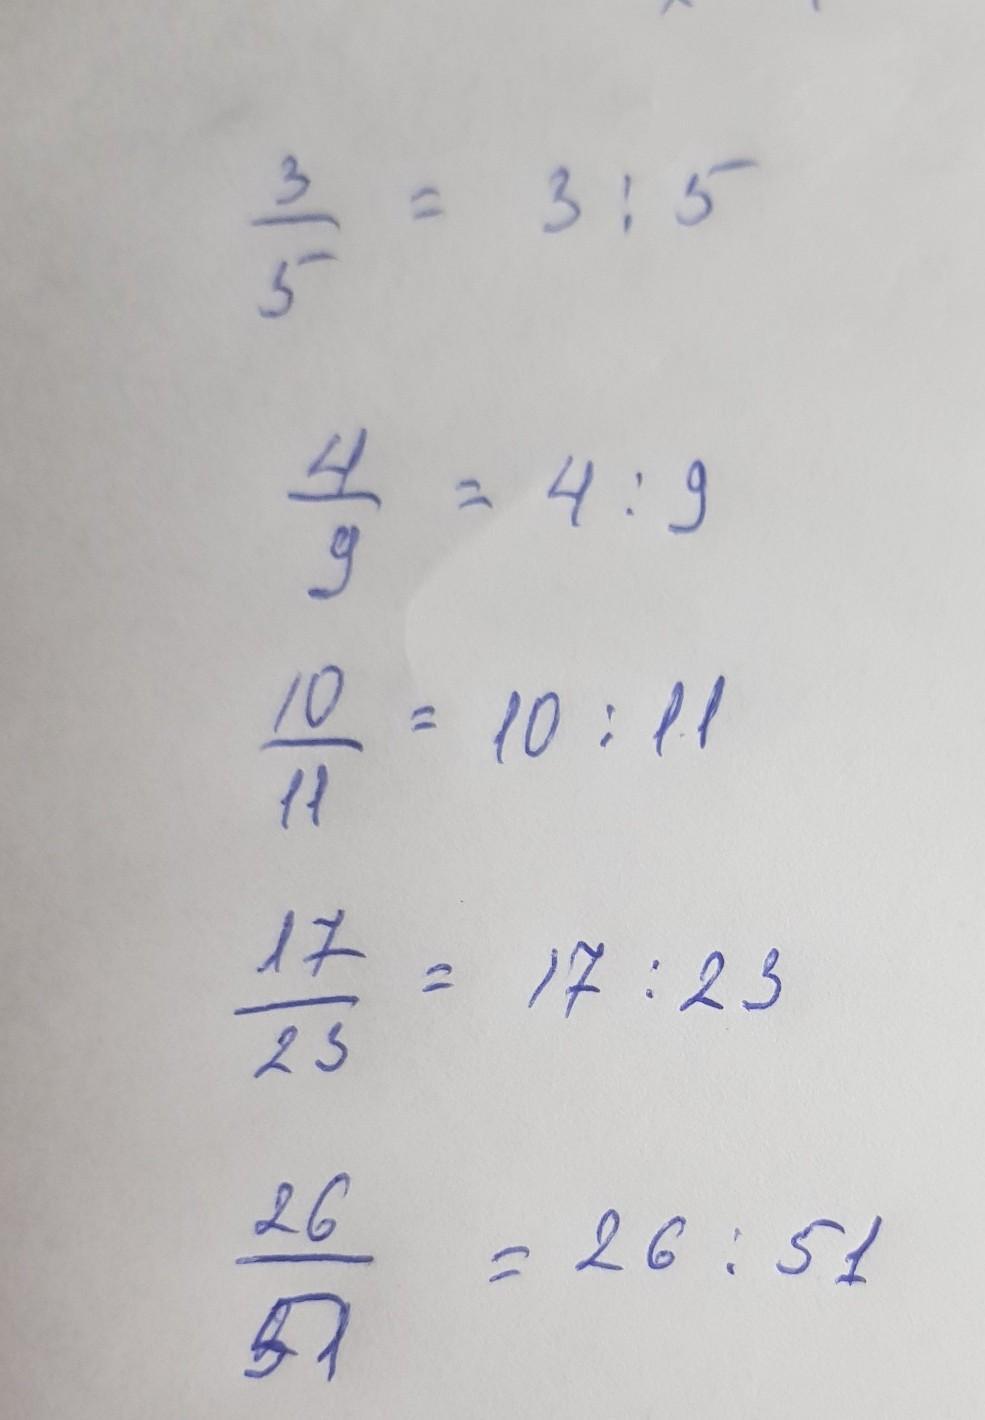 3/5 = 3 : 5
4/9 = 4 : 9
10/11 = 10 : 11
17/23 = 17 : 23
26/51 = 26 : 51